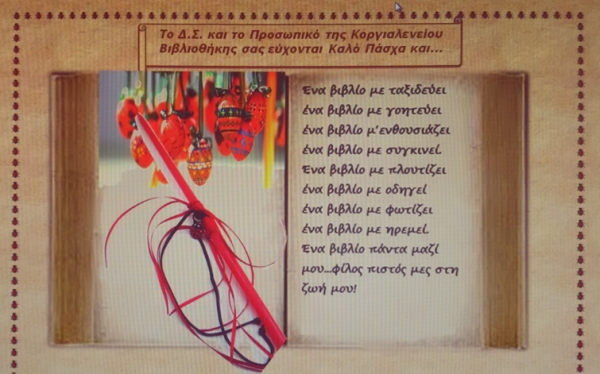 Το Δ.Σ. και το Προσωπικό της Κοργιαλενείου
Βιβλιοθήκης σας εύχονται Καλό Πάσχα και...
Ένα βιβλίο με ταξιδεύει
ένα βιβλίο με γοητεύει
ένα βιβλίο μ'ενθουσιάζει
ένα βιβλίο με συγκινεί.
Ένα βιβλίο με πλουτίζει
ένα βιβλίο με οδηγεί
ένα βιβλίο με φωτίζει
ένα βιβλίο με ηρεμεί.
Ένα βιβλίο πάντα μαζί
μου...φίλος πιστός μες στη
ζωή μου!